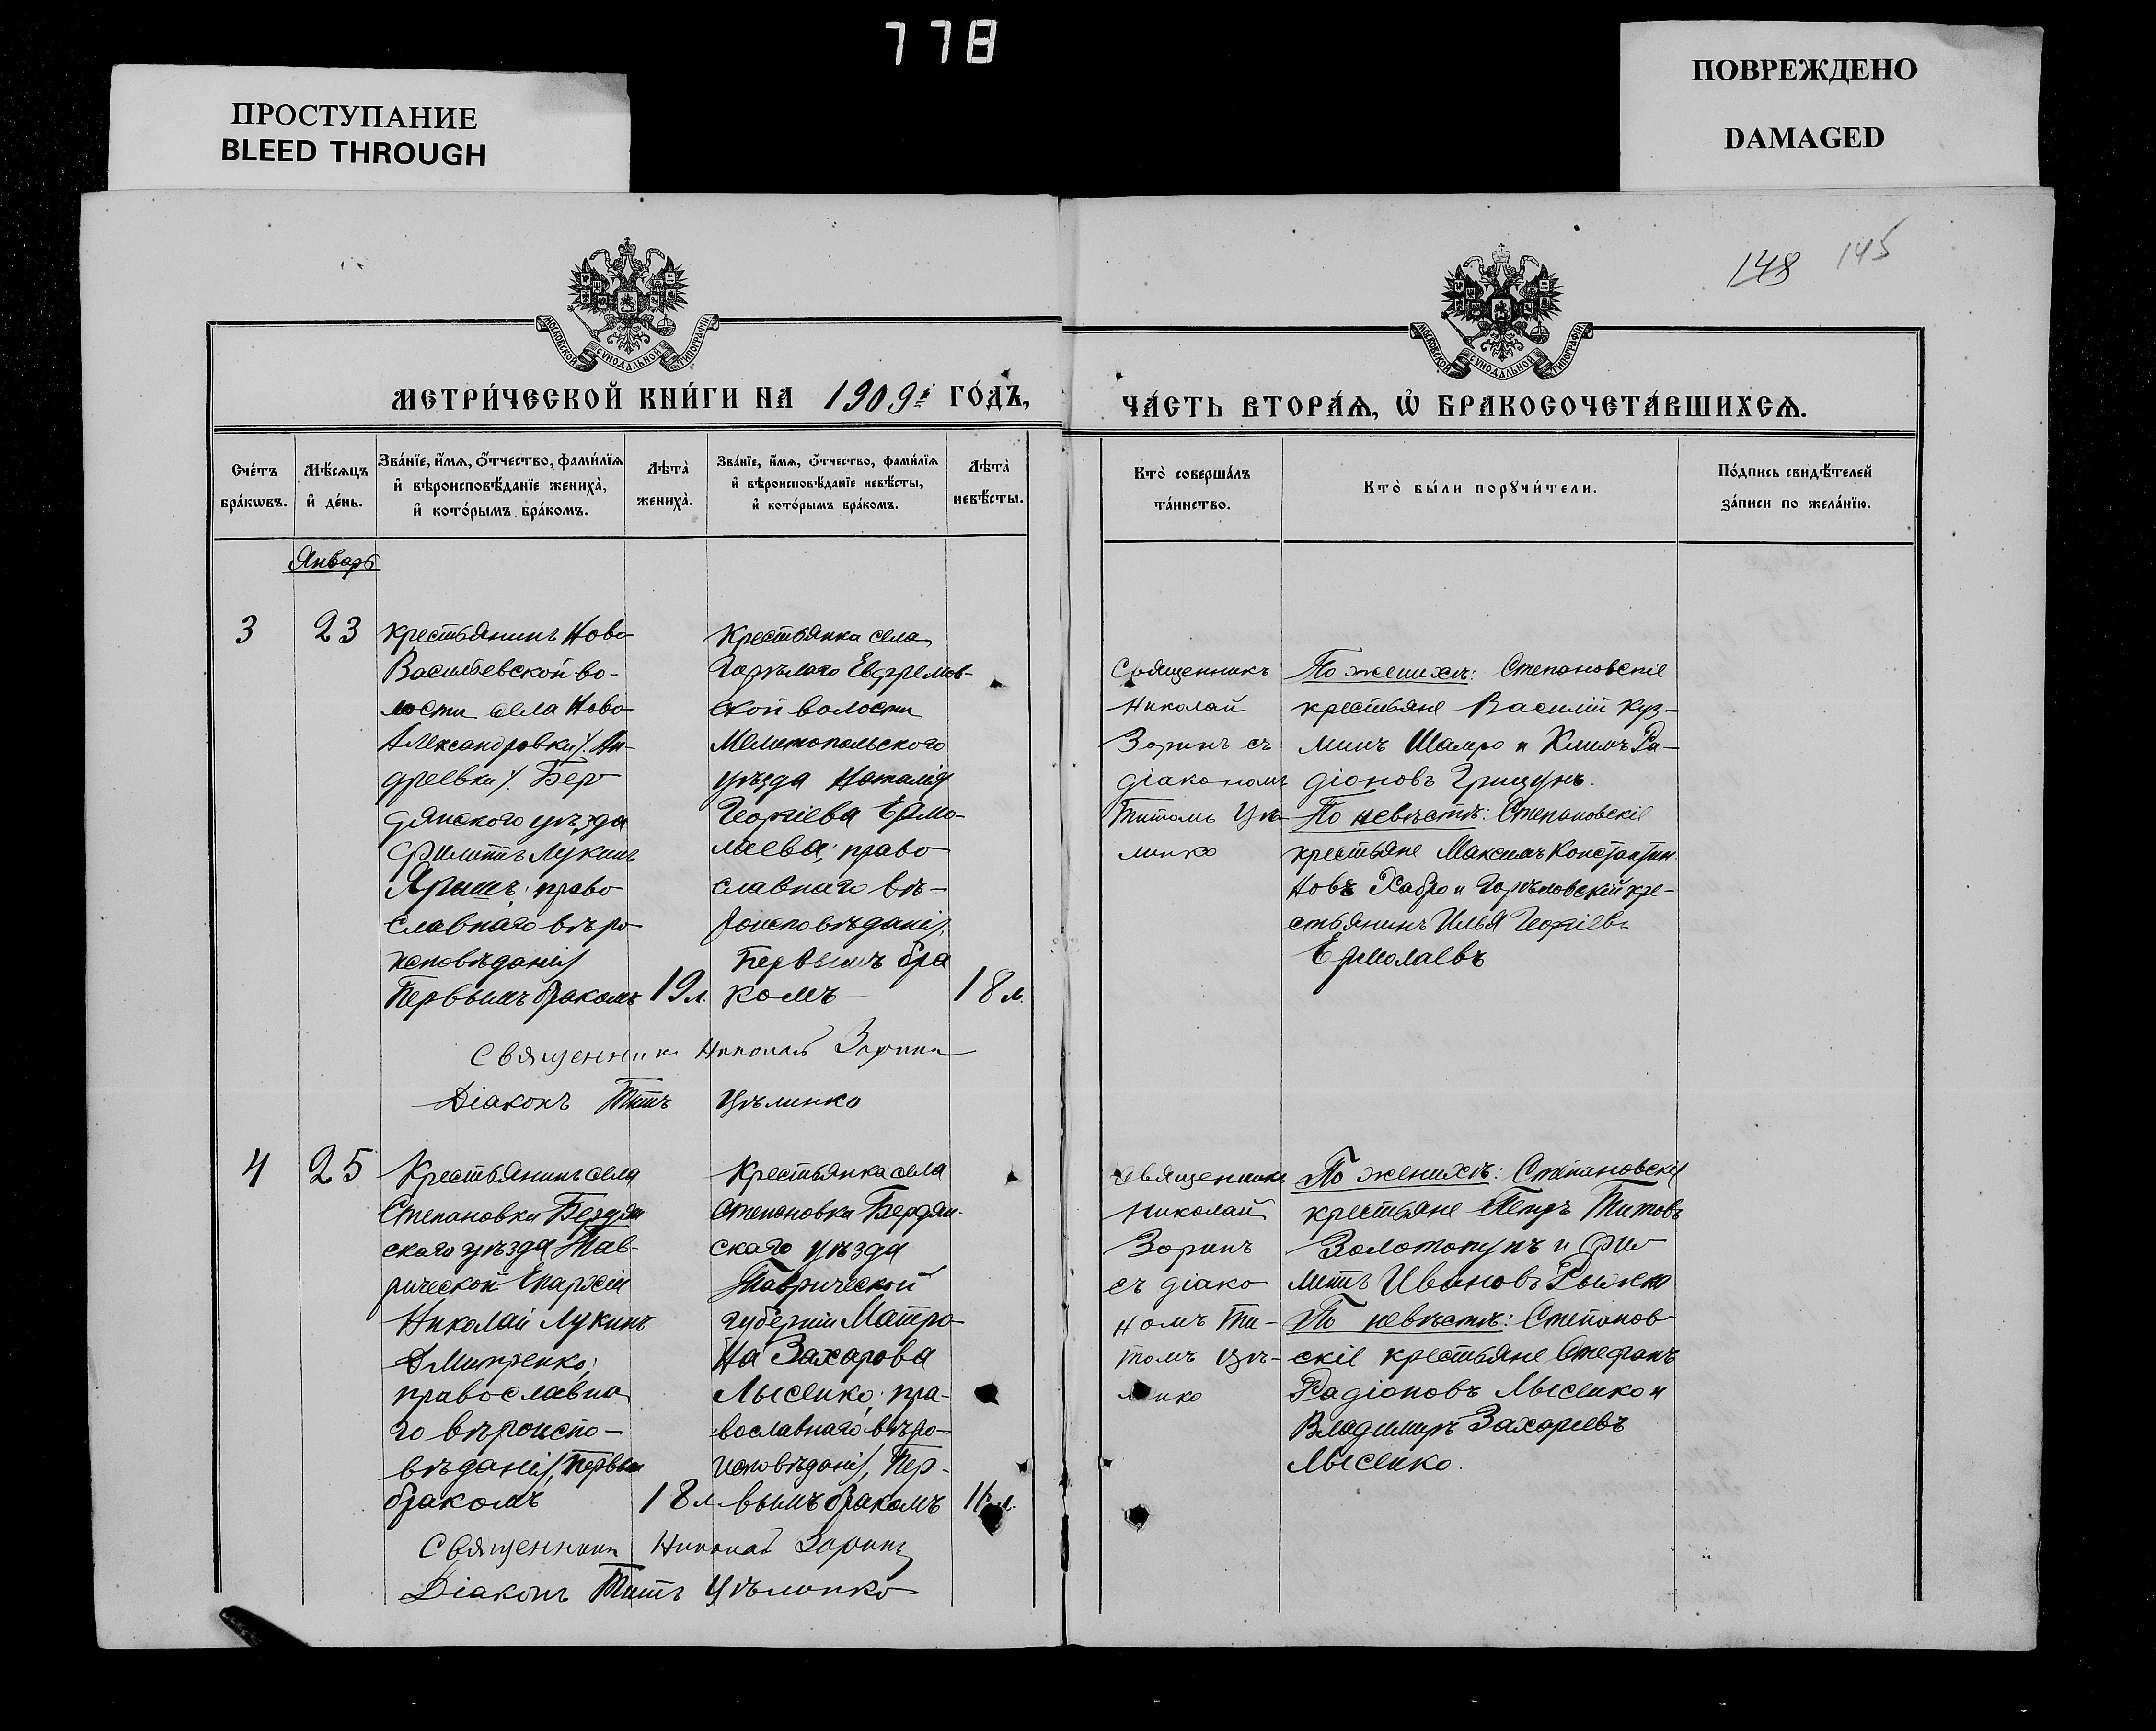 778
ПРОСТУПАНИЕ
BLEED THROUGH
ПОВРЕЖДЕНО
DAMAGED
148 145
МОСКОВСКОЙ СѴНОДАЛЬНОЙ ТИПОГРАФІИ
МОСКОВСКОЙ СѴНОДАЛЬНОЙ ТИПОГРАФІИ
МЕТРИ́ЧЕСКОЙ КНИ́ГИ НА 1909й ГО́ДЪ,
ЧА́СТЬ ВТОРА́Ѧ, Ѽ БРАКОСОЧЕТА́ВШИХСѦ.
Сче́тъ
бра́кѡвъ.
Мѣ́сѧцъ
и҆ де́нь.
Зва́нїе, и҆́мѧ, ѻ҆́тчество, фами́лїѧ
и҆ вѣроисповѣ́данїе жениха̀,
и҆ кото́рымъ бра́комъ.
Лѣта̀
жениха̀.
Зва́нїе, и҆́мѧ, ѻ҆́тчество, фами́лїѧ
и҆ вѣроисповѣ́данїе невѣ́сты,
и҆ кото́рымъ бра́комъ.
Лѣта̀
невѣ́сты.
Кто̀ соверша́лъ
та́инство.
Кто̀ бы́ли порꙋчи́тели.
По́дпись свидѣ́телей
за́писи по жела́нїю.
Январь
3
23
Крестьянинъ Ново-
Васильевской во-
лости села Ново
Александровки /. Ан-
дреевки /. Бер
дянскаго уѣзда
Филиппъ Лукинъ
Ярышъ; право
славнаго вѣро
исповѣданія
Первымъ бракомъ
19 л.
Крестьянка села
Горѣлаго Ефремов-
ской волости
Мелитопольскаго
уѣзда Наталія
Георгіева Ермо-
лаева; право
славнаго вѣ-
роисповѣданія,
Первымъ бра
комъ
18 л.
Священникъ
Николай
Зоринъ съ
діакономъ
Титомъ Цѣ-
линко
По женихѣ: Степановскіе
крестьяне Василій Куз-
минъ Шапро и Климъ Ра-
діоновъ Грицунъ.
По невѣстѣ: Степановскіе
крестьяне Максимъ Константин
новъ Хабро и Горѣловскій кре-
стьянинъ Илья Георгіевъ
Ермолаевъ
Священникъ Николай Зоринъ
Діаконъ Титъ Цѣлинко
4
25
Крестьянинъ села
Степановки Бердян
скаго уѣзда Тав-
рической Епархіи
Николай Лукинъ
Дмитренко;
православна
го вѣроиспо-
вѣданія, Первым
бракомъ
18 л.
Крестьянка села
Степановки Бердян-
скаго уѣзда
Таврической
губерніи Матро-
на Захарова
Лысенко; пра-
вославнаго вѣро-
исповѣданія, Пер-
вымъ бракомъ
16 л.
Священникъ
Николай
Зоринъ
съ діако
номъ Ти-
томъ Цѣ-
линко
По женихѣ: Степановскіе
крестьяне Петръ Титовъ
Золотопупъ и Фи
липпъ Ивановъ Рыжко
По невѣстѣ: Степанов
скіе крестьяне Стефанъ
Радіоновъ Лысенко и
Владимиръ Захаріевъ
Лысенко.
Священникъ Николай Зоринъ
Діаконъ Титъ Цѣлинко